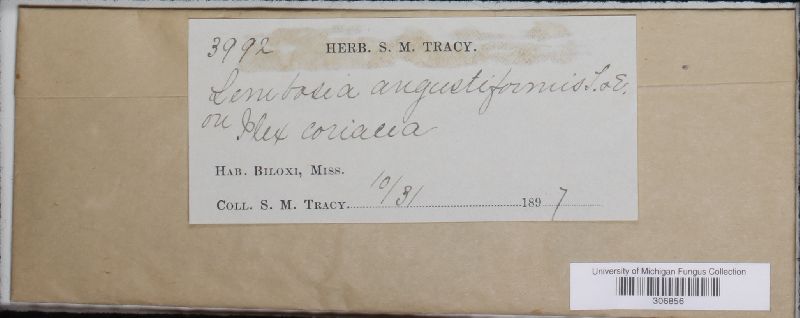 3992 HERB. S. M. TRACY.
Lembosia angustiformis T. & E.
on Ilex coriacea
HAB. BILOXI, MISS.
COLL. S. M. TRACY. 10/31 1897
University of Michigan Fungus Collection
306856